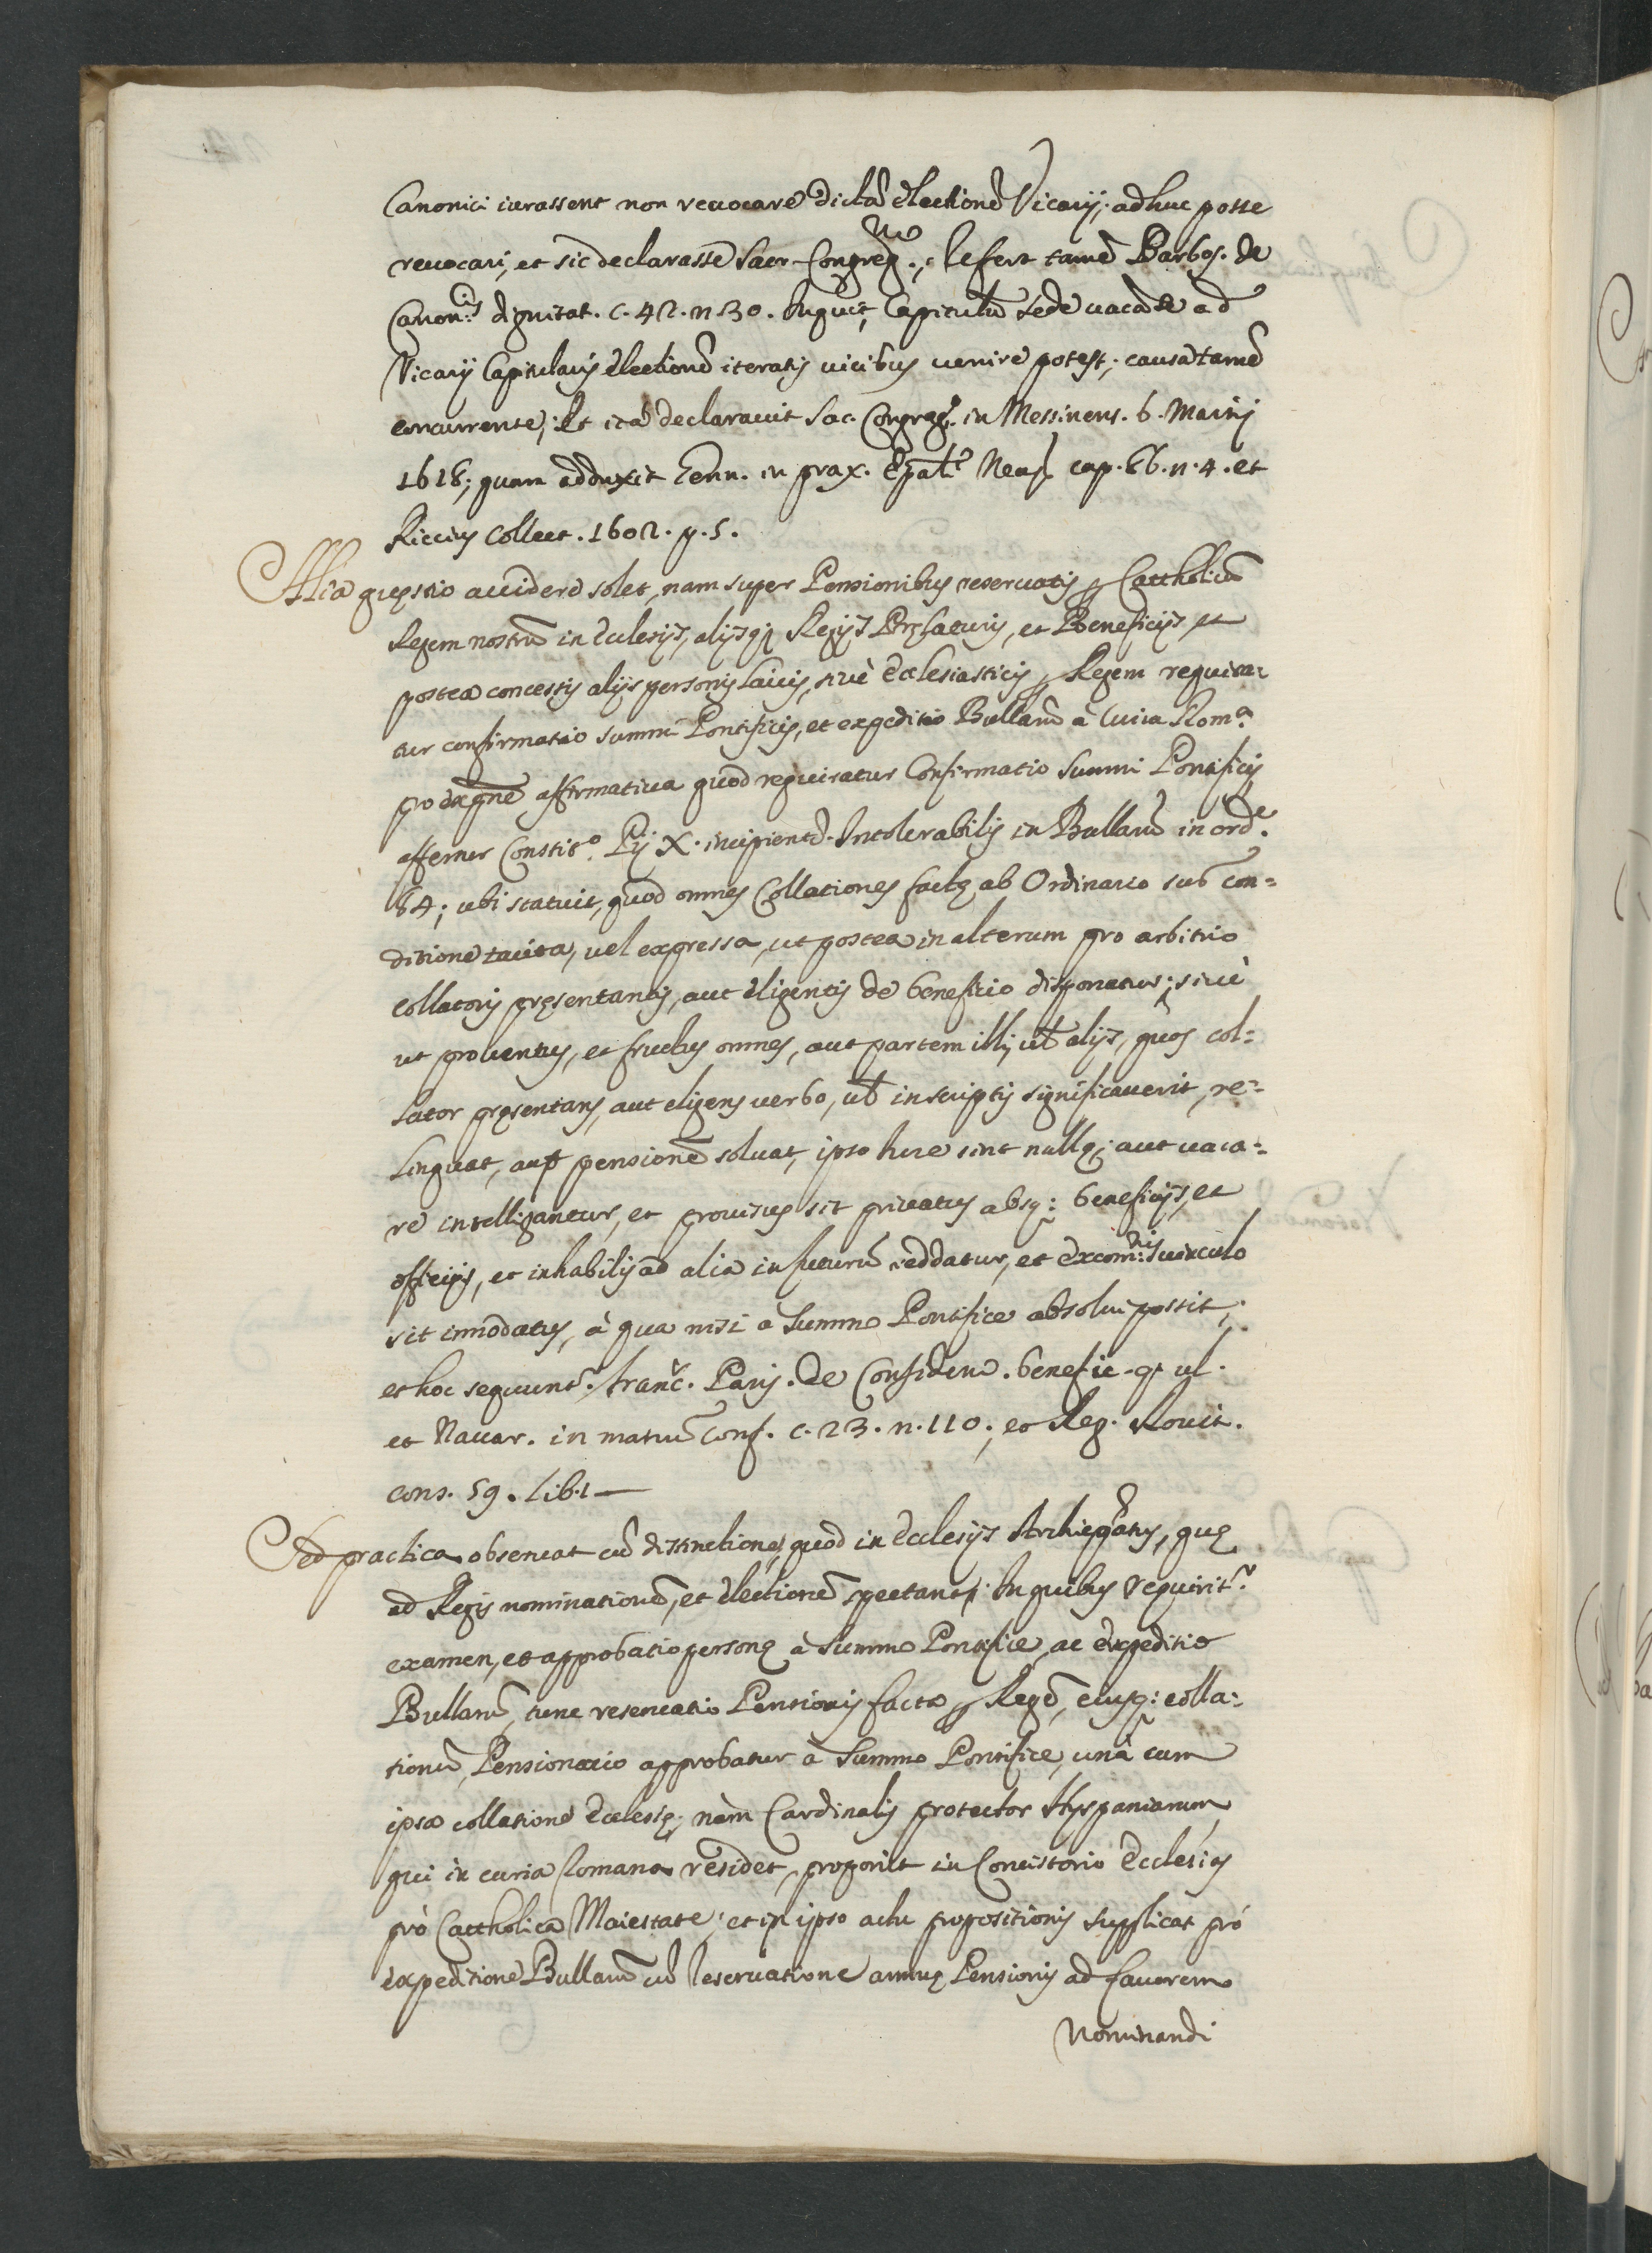 Canonici iurassent non reuocare dictā electionē Vicarij; adhuc posse
reuocari, et sic declarasse Sacr. Congreg.ne, refert tamē Barbos. de
Canon:is dignitat. c. 42. n 30. Inquit, Capitulū sede uacāte ad
Vicarij Capitularis electionē iteratis uicibus uenire potest; causa tamē
concurrente; Et ita declarauit Sac. Congreg. in Messinens. 6. Martij
1618; quam adduxit Genu. in prax. Ep̄ali Neap. cap. 86. n. 4. et
Riccius collect. 1602. p. 5.
Alia quęstio accidere solet, nam super Pensionibus reseruatis per Cattholicū
Regem nostrū in Ecclesijs, alijsq; Regijs Pręlaturis, et Beneficijs, et
postea concessis alijs personis laicis, siuè ecclesiasticis per Regem requira-
tur confirmatio summi Pontificis, et expeditio Bullarū à Curia Rom.a
pro exp̄ne affirmatiua quod requiratur Confirmatio Summi Pontificis
affertur Constit.o Pij X. incipient. Intolerabilis in Bullariū in ord.e
84; ubi statuit, quod omnes Collationes factę ab Ordinario sub con=
ditione tacita, uel expressa, ut postea in alterum pro arbitrio
collatoris pręsentantis, aut eligentis de beneficio disponatur; siuè
ut prouentus, et fructus omnes, aut partem illis, ul̄ alijs, quos col=
lator pręsentans, aut eligens uerbo, ul̄ in scriptis significauerit, re=
linquat, aut pensionē soluat, ipso iure sint nullę; aut uaca=
re intelligantur, et prouisus sit priuatus absq: beneficijs, et
officijs, et inhabilis ad alia in futurū reddatur, et excom:nis uinculo
sit innodatus, à qua nisi a Summo Pontifice absolui possit;
et hoc sequunt.r Franc. Paris. de Confident. benefic. q. ul.
et Nauar. in manu Conf. c. 23. n. 110; et Reg. Rouit.
cons. 59. lib. 1 —
Sed practica obseruat cū distinctione, quod in Ecclesijs Archiep̄atus, quę
ad Regis nominationē, et electionē spectant; In quibus requirit.r
examen, et approbatio personę à Summo Pontifice, ac expeditio
Bullarū, tunc reseruatio Pensionis facta per Regē, eiusq: colla=
tionē, Pensionario approbatur à Summo Pontifice, unà cum
ipsa collatione Ecclesię; nàm Cardinalis protector Hyspaniarum
qui in curia Romana residet, proponit in Concistorio Ecclesias
prò Cattholica Maiestate; et in ipso actu propositionis supplicat prò
expeditione Bullarū cū reseruatione annuę Pensionis ad fauorem
Nominandi